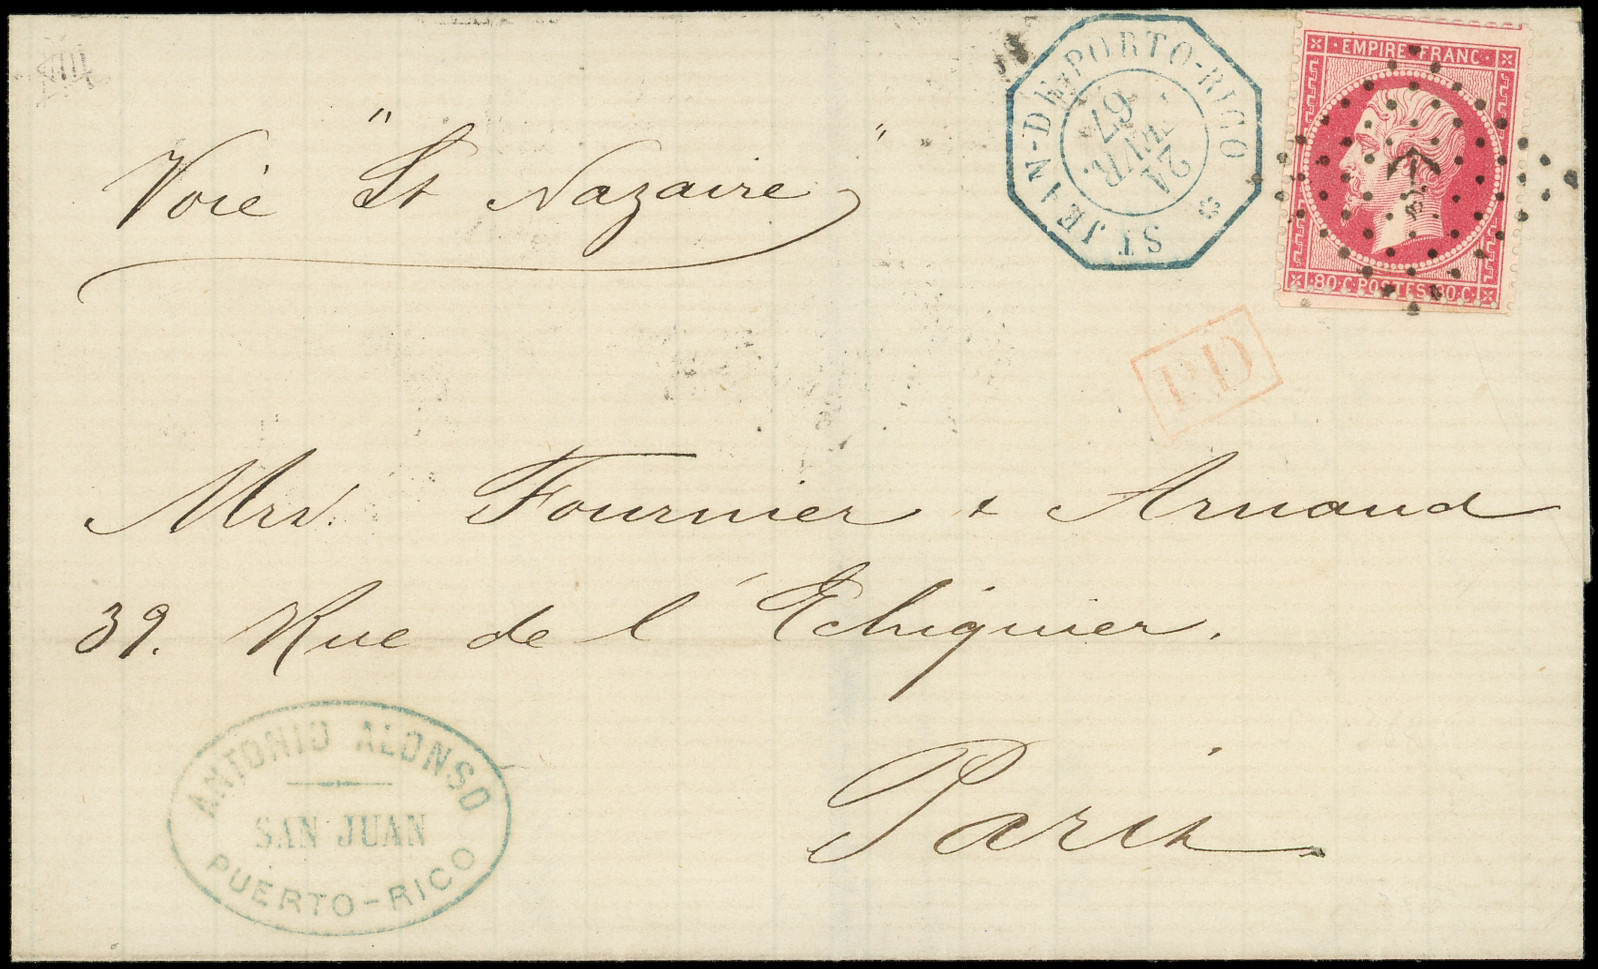 Voie "St Nazaire"
ST JEAN-DE-PORTO-RICO
2A
AVR.
67
EMPIRE FRANC
80·C·POSTES·80·C
P.D
Mrs. Fournier & Arnaud
39. Rue de l'Echiquier.
Paris
ANTONIO ALONSO
SAN JUAN
PUERTO-RICO